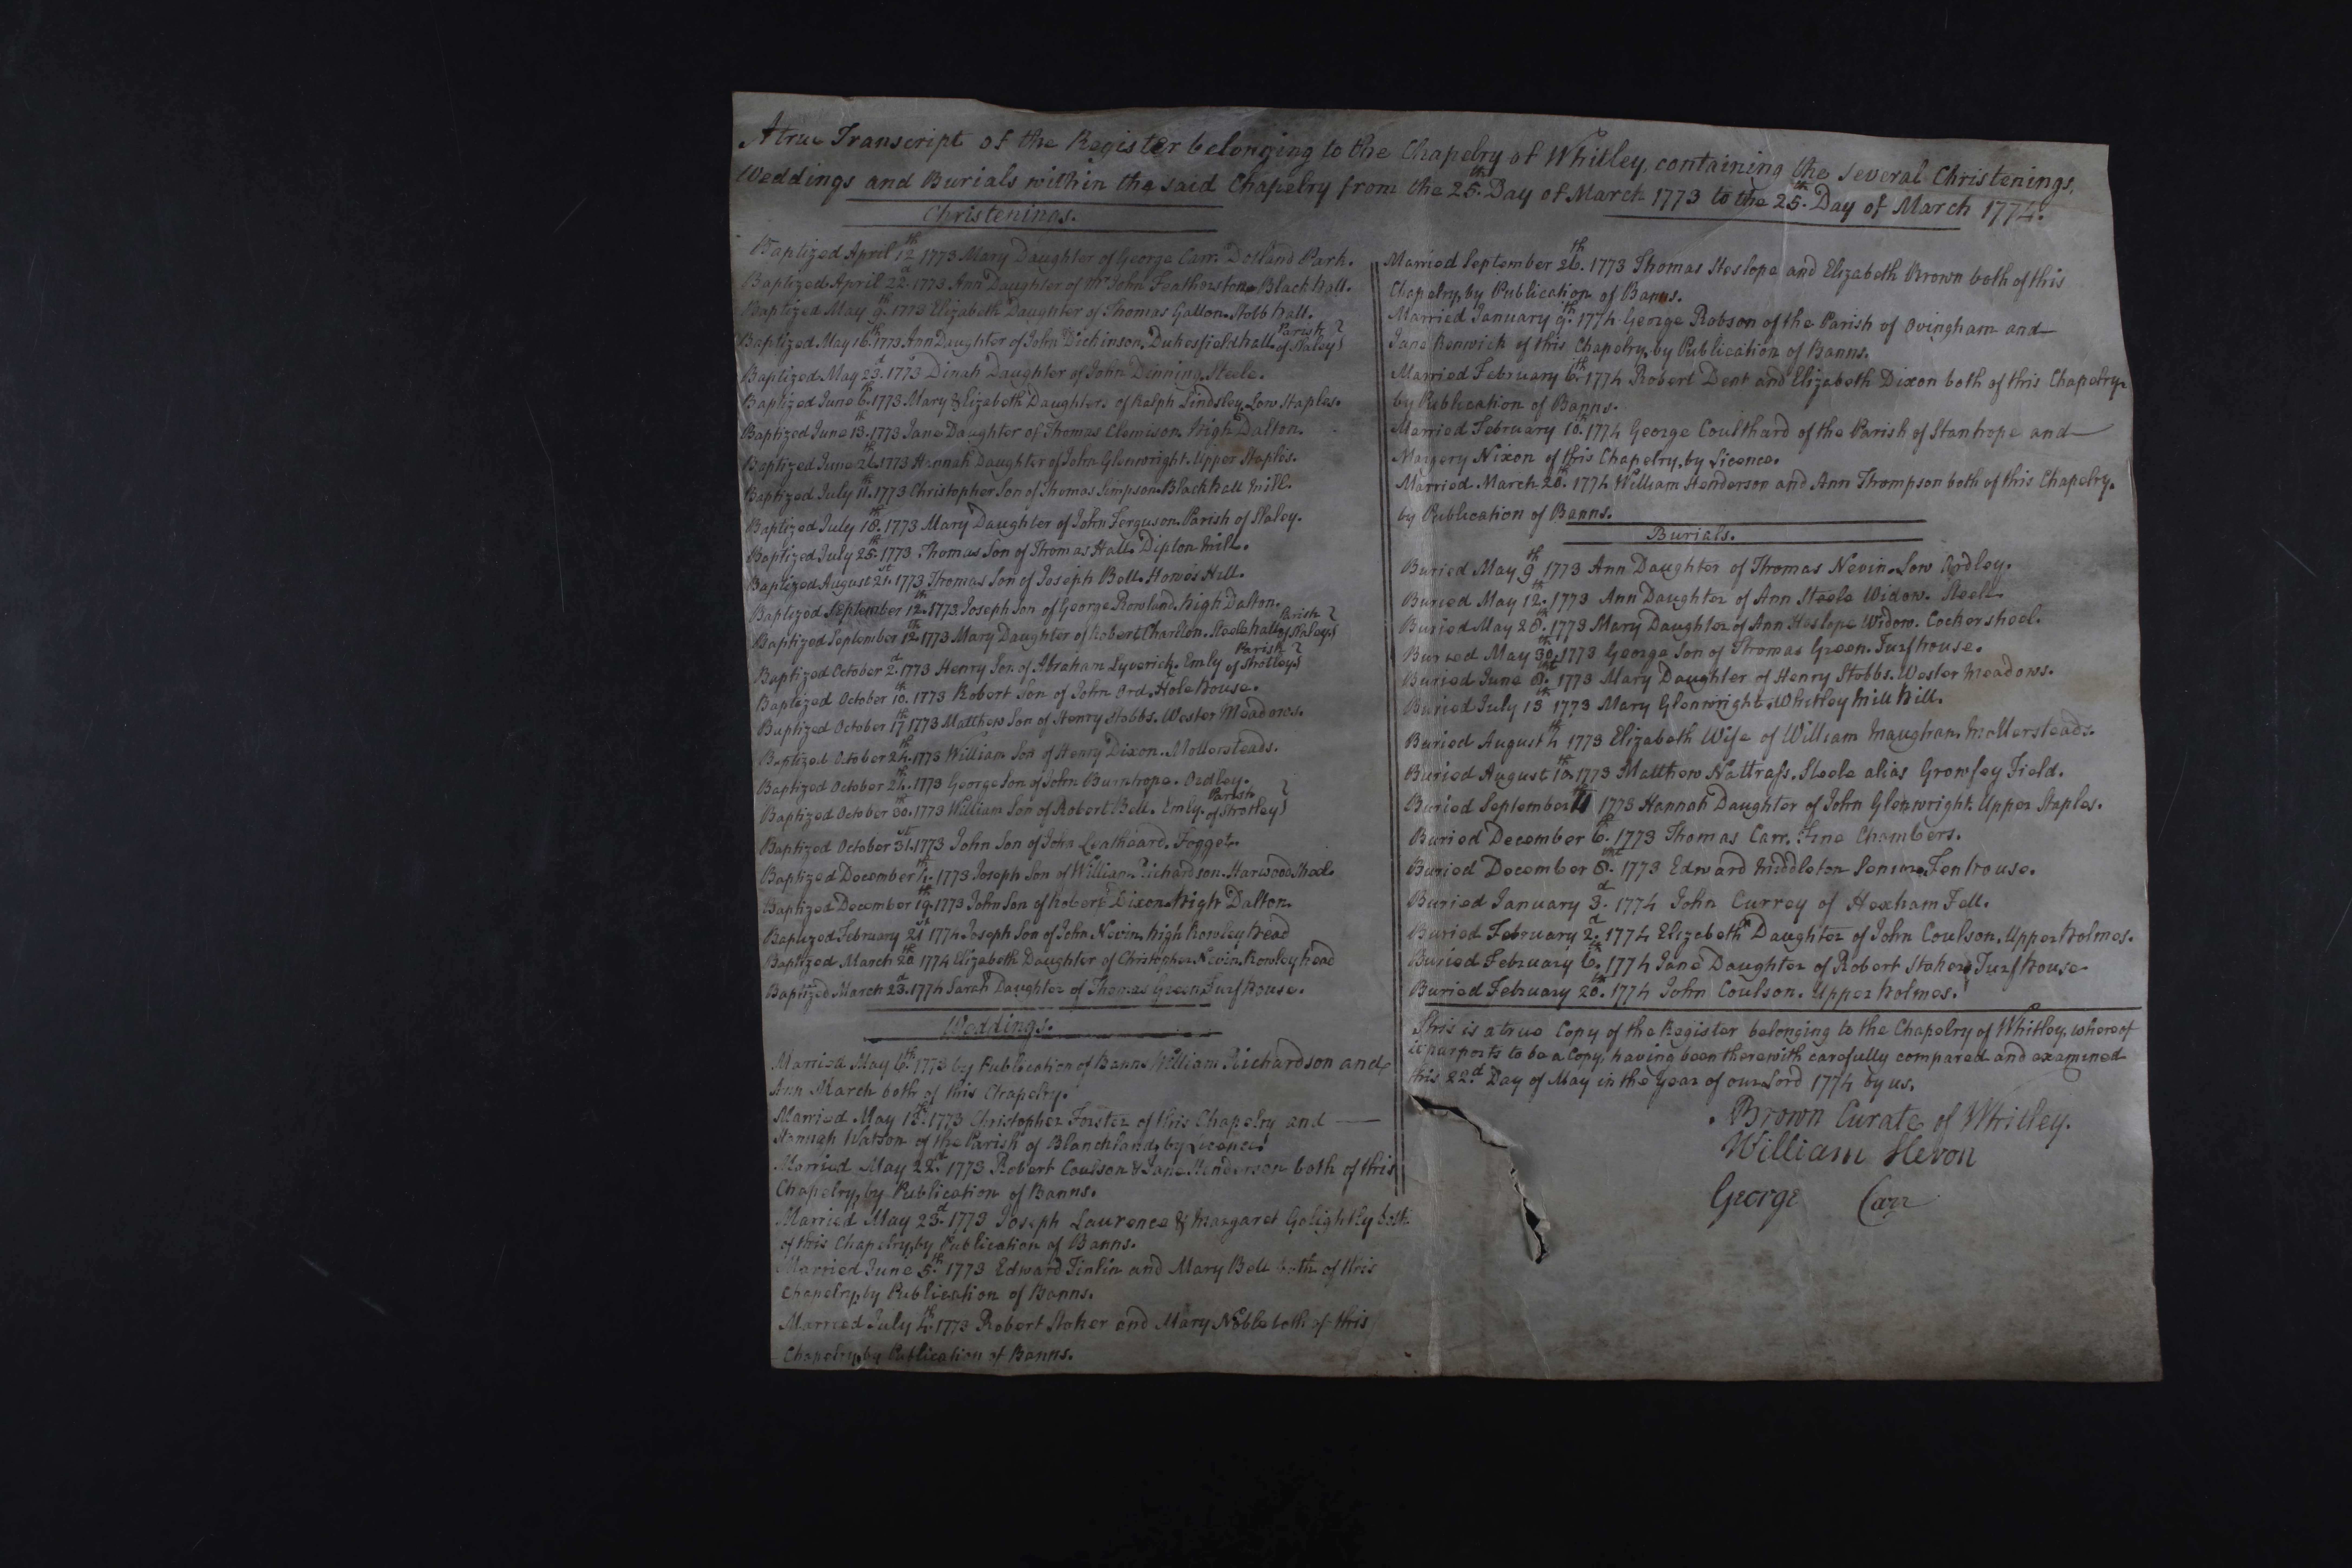 A true Transcript of the Register belonging to the Chapelry of Whitley, containing the several Christenings,
Weddings and Burials within the said Chapelry from the 25th Day of March 1773 to the 25th Day of March 1774.
Christenings.
Baptized April 12th 1773 Mary Daughter of George Carr. Dotland Park.
Baptized April 22d 1773 Ann Daughter of Mr John Featherstone Black hall.
Baptized May 9th 1773 Elizabeth Daughter of Thomas Gallon. Stobb hall.
Baptized May 16th 1773 Ann Daughter of John Dickinson, Dukesfield hall. Parish of Slaley
Baptized May 23d 1773 Dinah Daughter of John Dinning, Steele.
Baptized June 6th 1773 Mary & Elizabeth Daughters of Ralph Lindsley, Low Staples.
Baptized June 13th 1773 Jane Daughter of Thomas Clemison. High Dalton.
Baptized June 26th 1773 Hannah Daughter of John Glenwright. Upper Staples.
Baptized July 11th 1773 Christopher Son of Thomas Simpson. Black hall Mill.
Baptized July 18th 1773 Mary Daughter of John Ferguson. Parish of Slaley.
Baptized July 25th 1773 Thomas Son of Thomas Hall. Dipton Mill.
Baptized August 21st 1773 Thomas Son of Joseph Bell. Howes Hill.
Baptized September 12th 1773 Joseph Son of George Rowland, high Dalton.
Baptized September 12th 1773 Mary Daughter of Robert Charlton. Steele hall Parish of Slaley
Baptized October 2d 1773 Henry Son of Abraham Lyverick. Emly Parish of Shotley
Baptized October 10th 1773 Robert Son of John Ord. Hole house.
Baptized October 17th 1773 Matthew Son of Henry Stobbs. Wester Meadows.
Baptized October 24th 1773 William Son of Henry Dixon. Mollersteads.
Baptized October 24th 1773 George Son of John Burnhope. Ordley.
Baptized October 30th 1773 William Son of Robert Bell. Emly. Parish of Shotley
Baptized October 31st 1773 John Son of John Leatheard. Foggot.
Baptized December 4th 1773 Joseph Son of William Richardson. Harwood Sheel.
Baptized December 19th 1773 John Son of Robert Dixon. high Dalton.
Baptized February 21st 1774 Joseph Son of John Nevin, high Rowley head
Baptized March 20th 1774 Elizabeth Daughter of Christopher Nevin. Rowley head
Baptized March 23d 1774 Sarah Daughter of Thomas Green, Turf house.
Weddings.
Married May 6th 1773 by Publication of Banns William Richardson and
Ann March both of this Chapelry.
Married May 13th 1773 Christopher Forster of this Chapelry and
Hannah Watson of the Parish of Blanchland, by Licence.
Married May 22d 1773 Robert Coulson & Jane Henderson both of this
Chapelry, by Publication of Banns.
Married May 23d 1773 Joseph Laurence & Margaret Golightly both
of this Chapelry, by Publication of Banns.
Married June 5th 1773 Edward Tinlin and Mary Bell both of this
Chapelry, by Publication of Banns.
Married July 4th 1773 Robert Stoker and Mary Noble both of this
Chapelry, by Publication of Banns.
Married September 26th 1773 Thomas Heslope and Elizabeth Brown both of this
Chapelry, by Publication of Banns.
Married January 9th 1774 George Robson of the Parish of Ovingham and
Jane Renwick of this Chapelry, by Publication of Banns.
Married February 6th 1774 Robert Dent and Elizabeth Dixon both of this Chapelry
by Publication of Banns.
Married February 10th 1774 George Coulthard of the Parish of Stanhope and
Margery Nixon of this Chapelry, by Licence.
Married March 20th 1774 William Henderson and Ann Thompson both of this Chapelry.
by Publication of Banns.
Burials.
Buried May 9th 1773 Ann Daughter of Thomas Nevin. Low Ordley.
Buried May 12th 1773 Ann Daughter of Ann Steele Widow. Steele.
Buried May 28th 1773 Mary Daughter of Ann Heslope Widow. Cockersheel.
Buried May 30th 1773 George Son of Thomas Green. Turf house.
Buried June 8th 1773 Mary Daughter of Henry Stobbs. Wester Meadows.
Buried July 13th 1773 Mary Glenwright. Whitley Mill hill.
Buried August 4th 1773 Elizabeth Wife of William Maughan. Mollersteads.
Buried August 10th 1773 Matthew Nattrass. Steele alias Growsey Field.
Buried September 11th 1773 Hannah Daughter of John Glenwright. Upper Staples.
Buried December 6th 1773 Thomas Carr. Fine Chambers.
Buried December 8th 1773 Edward Middleton Senior. Fenhouse.
Buried January 3d 1774 John Currey of Hexham Fell.
Buried February 2d 1774 Elizabeth Daughter of John Coulson. Upper holmes.
Buried February 6th 1774 Jane Daughter of Robert Stoker. Turf house
Buried February 20th 1774 John Coulson. Upper holmes.
This is a true Copy of the Register belonging to the Chapelry of Whitley, whereof
it purports to be a Copy, having been therewith carefully compared and examined
this 22d Day of May in the Year of our Lord 1774 by us,
Brown Curate of Whitley.
William Hevon
George Carr